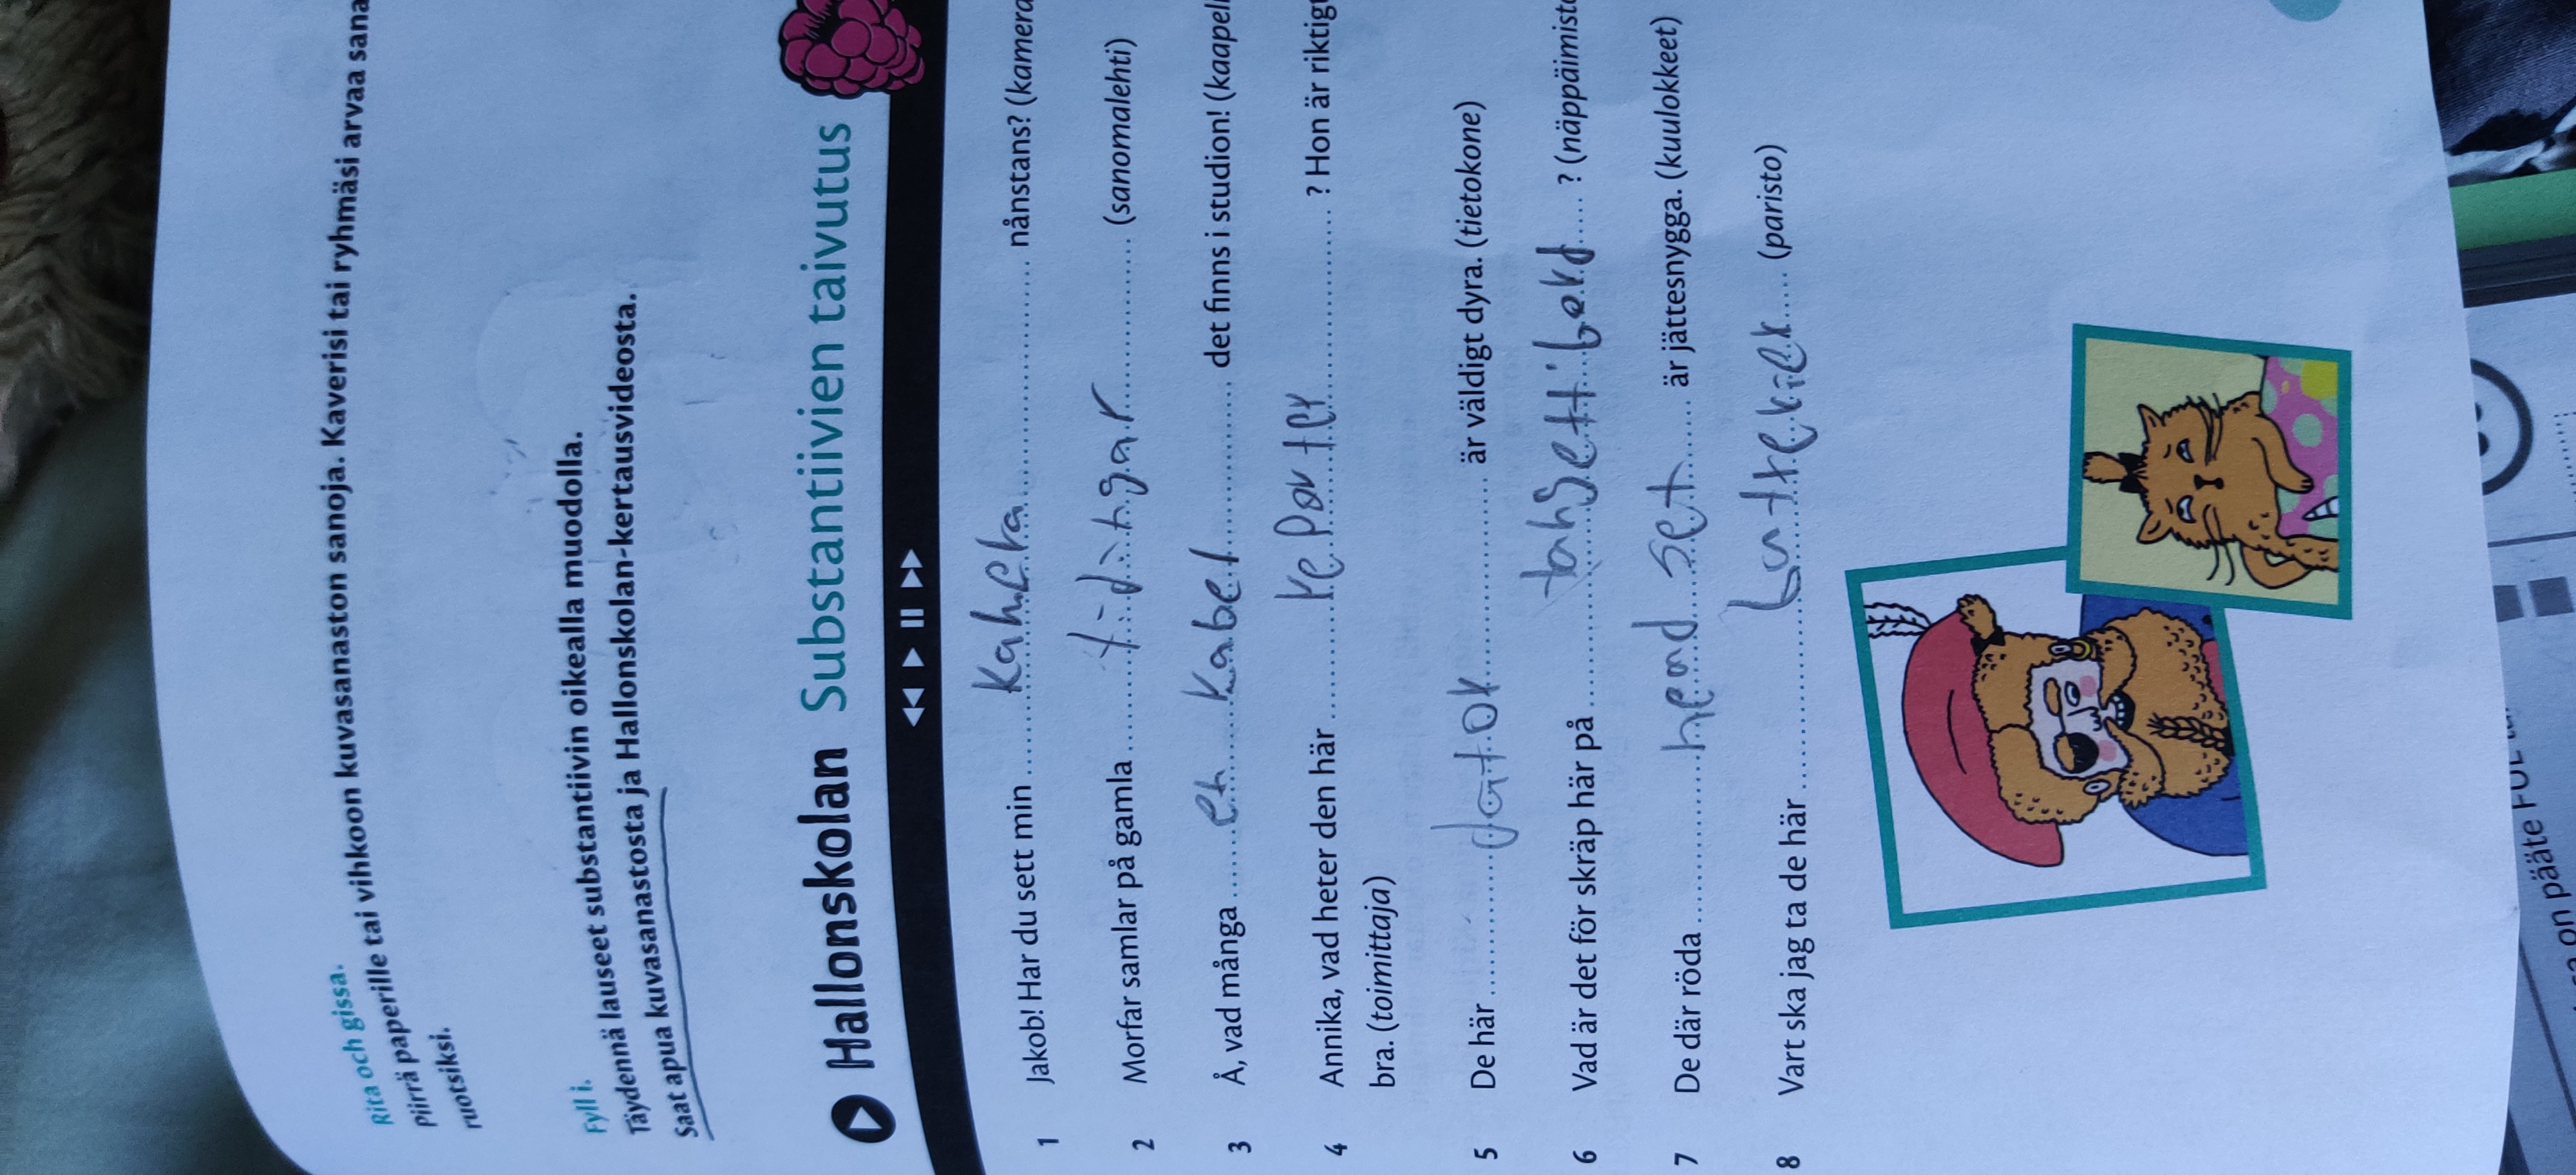 Rita och gissa.
piirrä paperille tai vihkoon kuvasanaston sanoja. Kaverisi tai ryhmäsi arvaa sana
ruotsiksi.
Fyll i.
Täydennä lauseet substantiivin oikealla muodolla.
Saat apua kuvasanastosta ja Hallonskolan-kertausvideosta.
Hallonskolan Substantiivien taivutus
1 Jakob! Har du sett min nånstans? (kamera
2 Morfar samlar på gamla tidningar (sanomalehti)
3 Å, vad många en kabel det finns i studion! (kaapeli
4 Annika, vad heter den här reporter ? Hon är riktigt
bra. (toimittaja)
5 De här dator är väldigt dyra. (tietokone)
6 Vad är det för skräp här på ? (näppäimistö
7 De där röda head set är jättesnygga. (kuulokkeet)
8 Vart ska jag ta de här (paristo)
on pääte